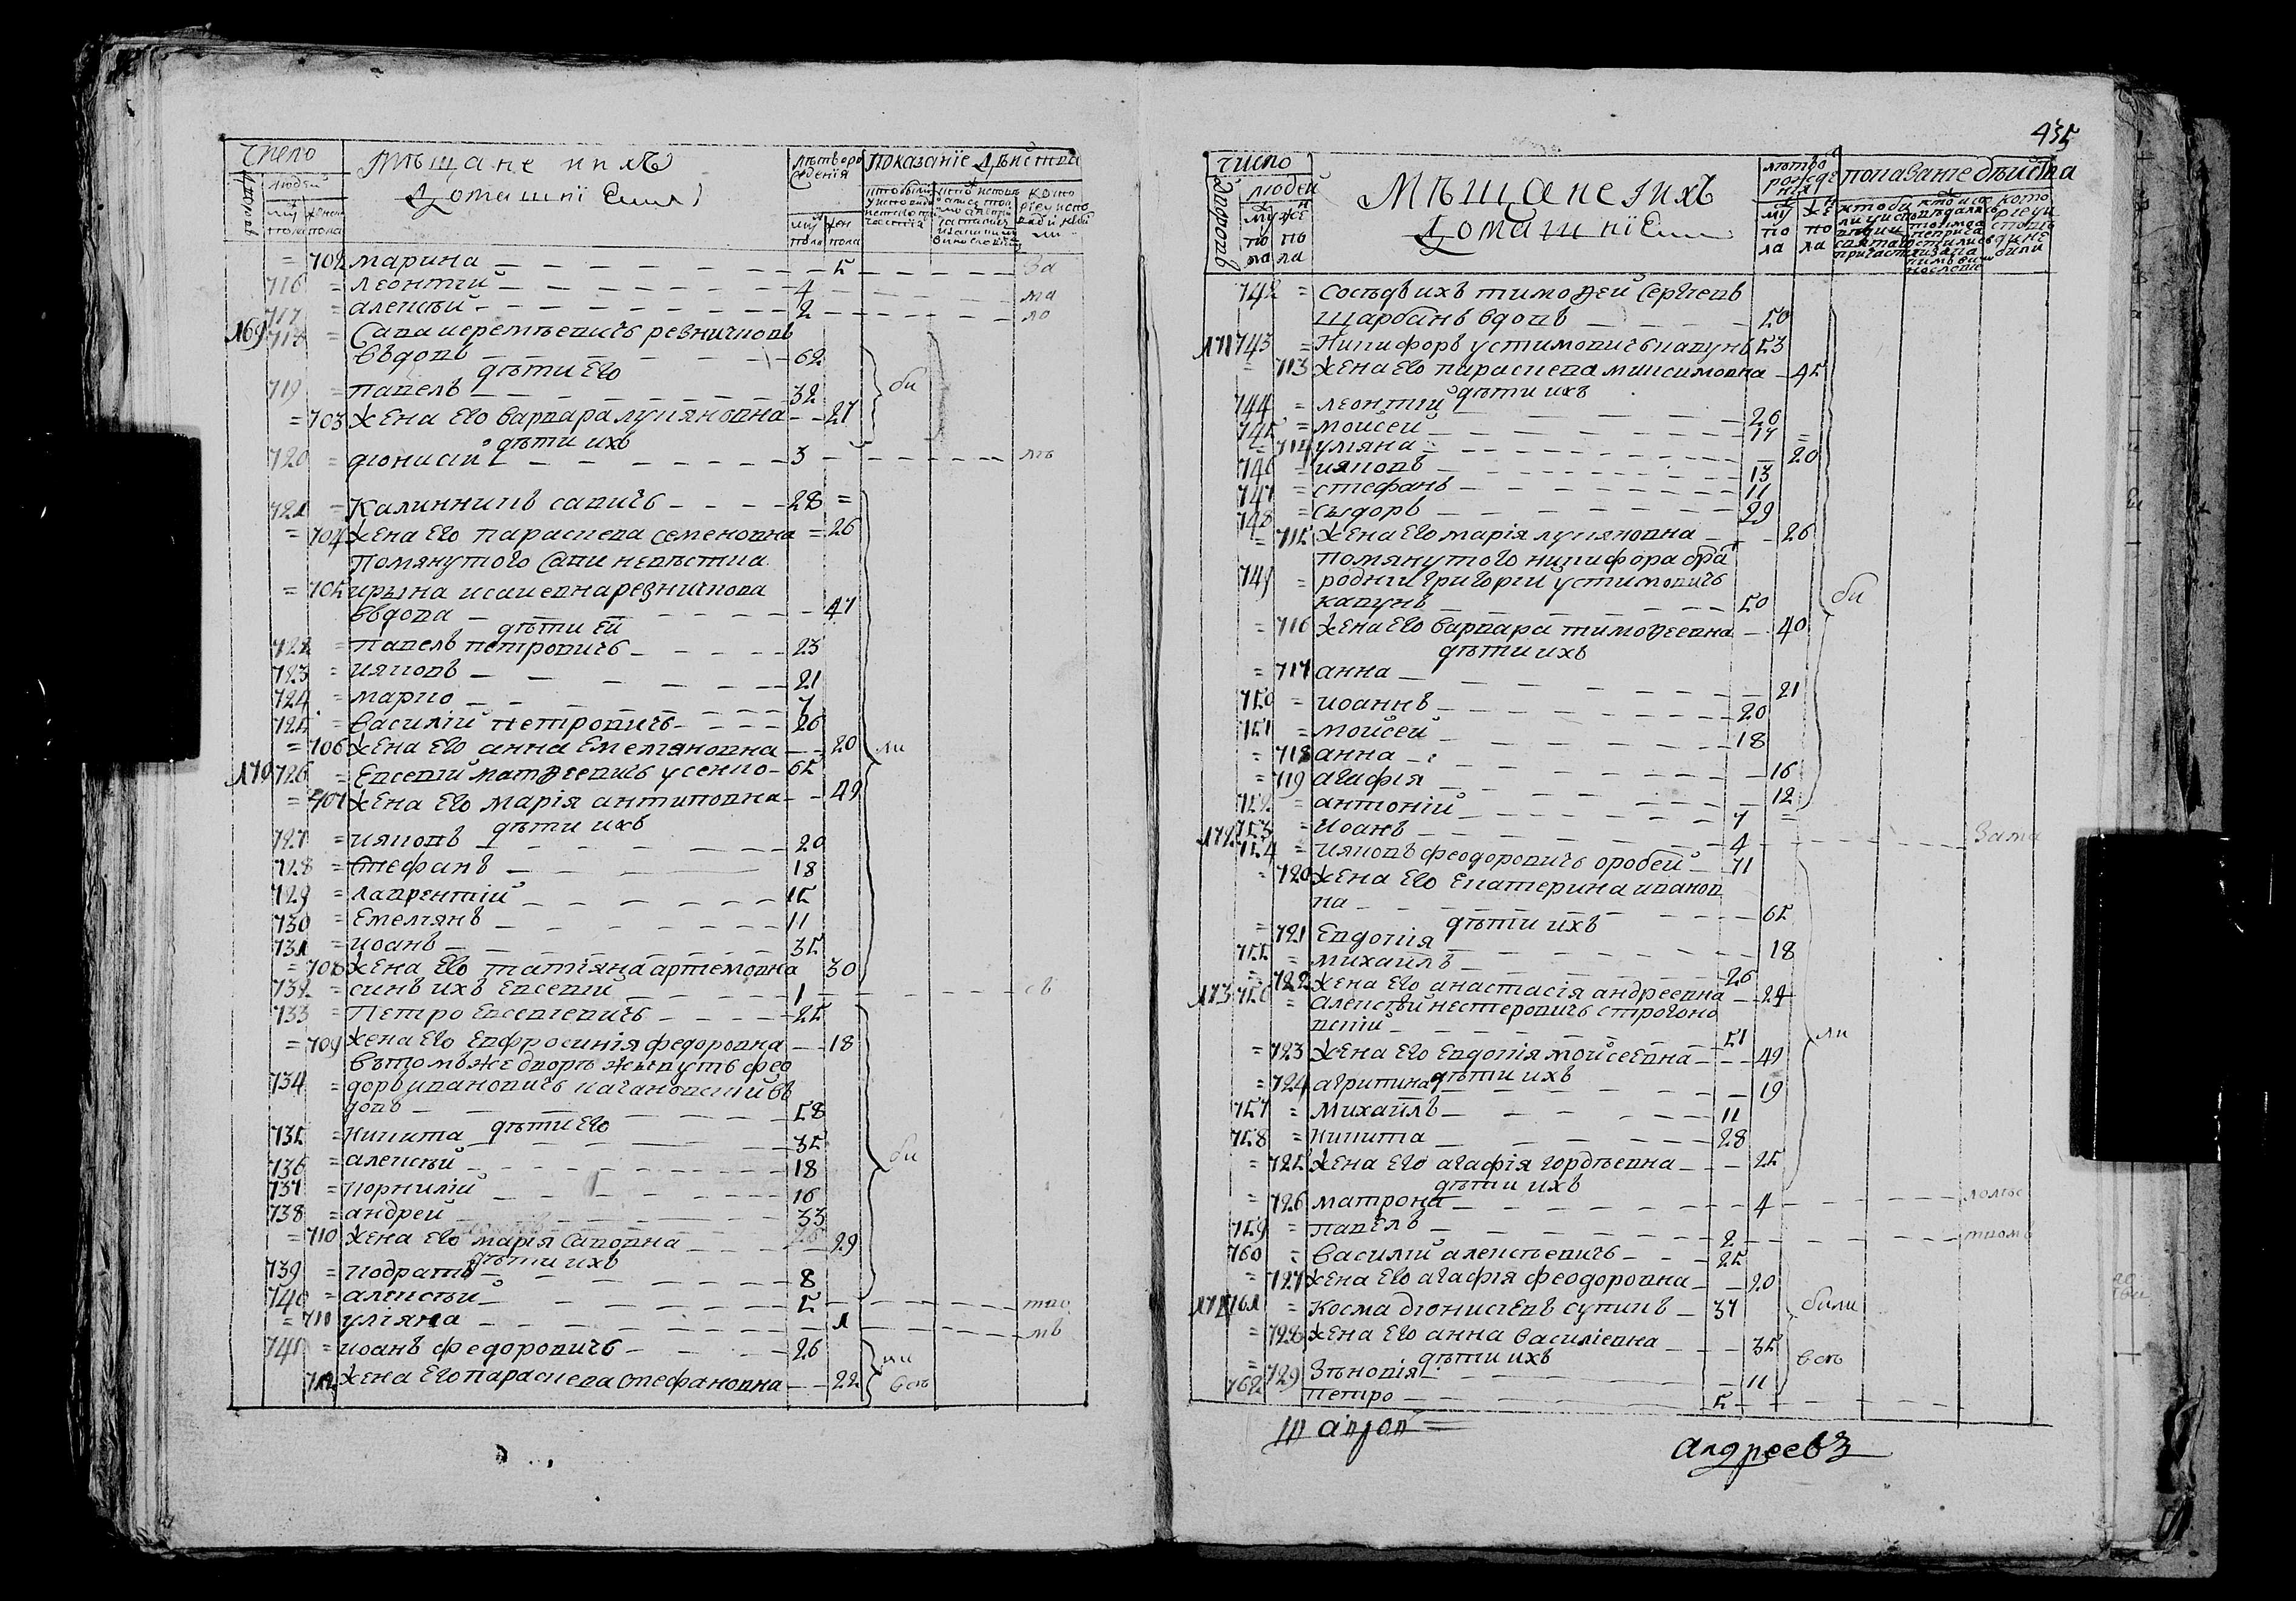 число
Мѣщане и ихъ
домашнїе
лѣтъ рождения
показание дѣйства
людей
муж пола
жен пола
702 марина 5 за
716 леонтий 4 ма
717 алексѣй 2 ло
169 718 Сава иеремѣевичъ резничковъ
вдовъ 62
дѣти его
719 павелъ 32 би
703 жена его варвара лукяновна 27
дѣти ихъ
720 дионисий 3 лѣ
721 Калинникъ савичъ 28
704 жена его параскева семеновна 26
помянутого Сави невѣстка
705 ирына исаиевна резничкова
вдова 47
дѣти ей
722 павелъ петровичъ 23
723 ияковъ 21
724 марко 7
725 василий петровичъ 26
706 жена его анна емелияновна 20 ли
170 726 Евсевий матѳеевичъ усенко 65
707 жена его мария антиповна 49
дѣти ихъ
727 ияковъ 20
728 стефанъ 18
729 лаврентий 15
730 емелиянъ 11
731 иоанъ 35
708 жена его татияна артемовна 30
732 синъ ихъ евсевий 1 съ
733 Петро евсевиевичъ 25
709 жена его евфросиния федоровна 18
въ томъ же дворѣ живутъ фео
734 доръ ивановичъ кагановский въ
довъ 58
дѣти его
735 никита 35 би
736 алексѣй 18
737 корнилий 16
738 андрей 33
710 жена его мария савовна 29
дѣти ихъ
739 кодратъ 8
740 алексѣй 5 тво
711 улияна 1 мъ
741 иоанъ федоровичъ 26 ли
712 жена его параскева стефановна 22 всѣ
435
число
Мѣщане и ихъ
домашнїе
лѣтъ рождения
показание дѣйства
дворовъ
людей
му по ла
же по ла
742 сосѣдъ ихъ тимоѳей сергиевъ
щарбанъ вдовъ 50
171 743 Никифоръ устимовичъ кавунъ 53
713 жена его параскева максимовна 45
дѣти ихъ
744 леонтий 26
745 мойсей 17
714 улияна 20
746 ияковъ 13
747 стефанъ 11
748 сыдоръ 29
715 жена его мария лукяновна 26
помянутого никифора бра
749 родний григорий устимовичъ
кавунъ 50 би
716 жена его варвара тимоѳеевна 40
дѣти ихъ
717 анна 21
750 иоаннъ 20
751 мойсей 18
718 анна 16
719 агафия 12
752 антоний 7
753 иоанъ 4 зама
172 754 ияковъ феодоровичъ оробей 71
720 жена его екатерина иванов
на 65
дѣти ихъ
721 евдокия 18
755 михаилъ 26
722 жена его анастасия андреевна 24
173 756 алексѣй нестеровичъ строгоно
вский 51 ли
723 жена его евдокия мойсеевна 49
дѣти ихъ
724 агрипина 19
757 михаилъ 11
758 никита 28
725 жена его агафия гордѣевна 25
дѣти ихъ
726 матрона 4
759 павелъ 2
760 василий алексѣевичъ 25
727 жена его агафия феодоровна 20
174 761 косма дионисиевъ супикъ 37 били
728 жена его анна василиевна 35
дѣти ихъ всѣ
729 зѣновия 11
762 петро 5
андреевъ